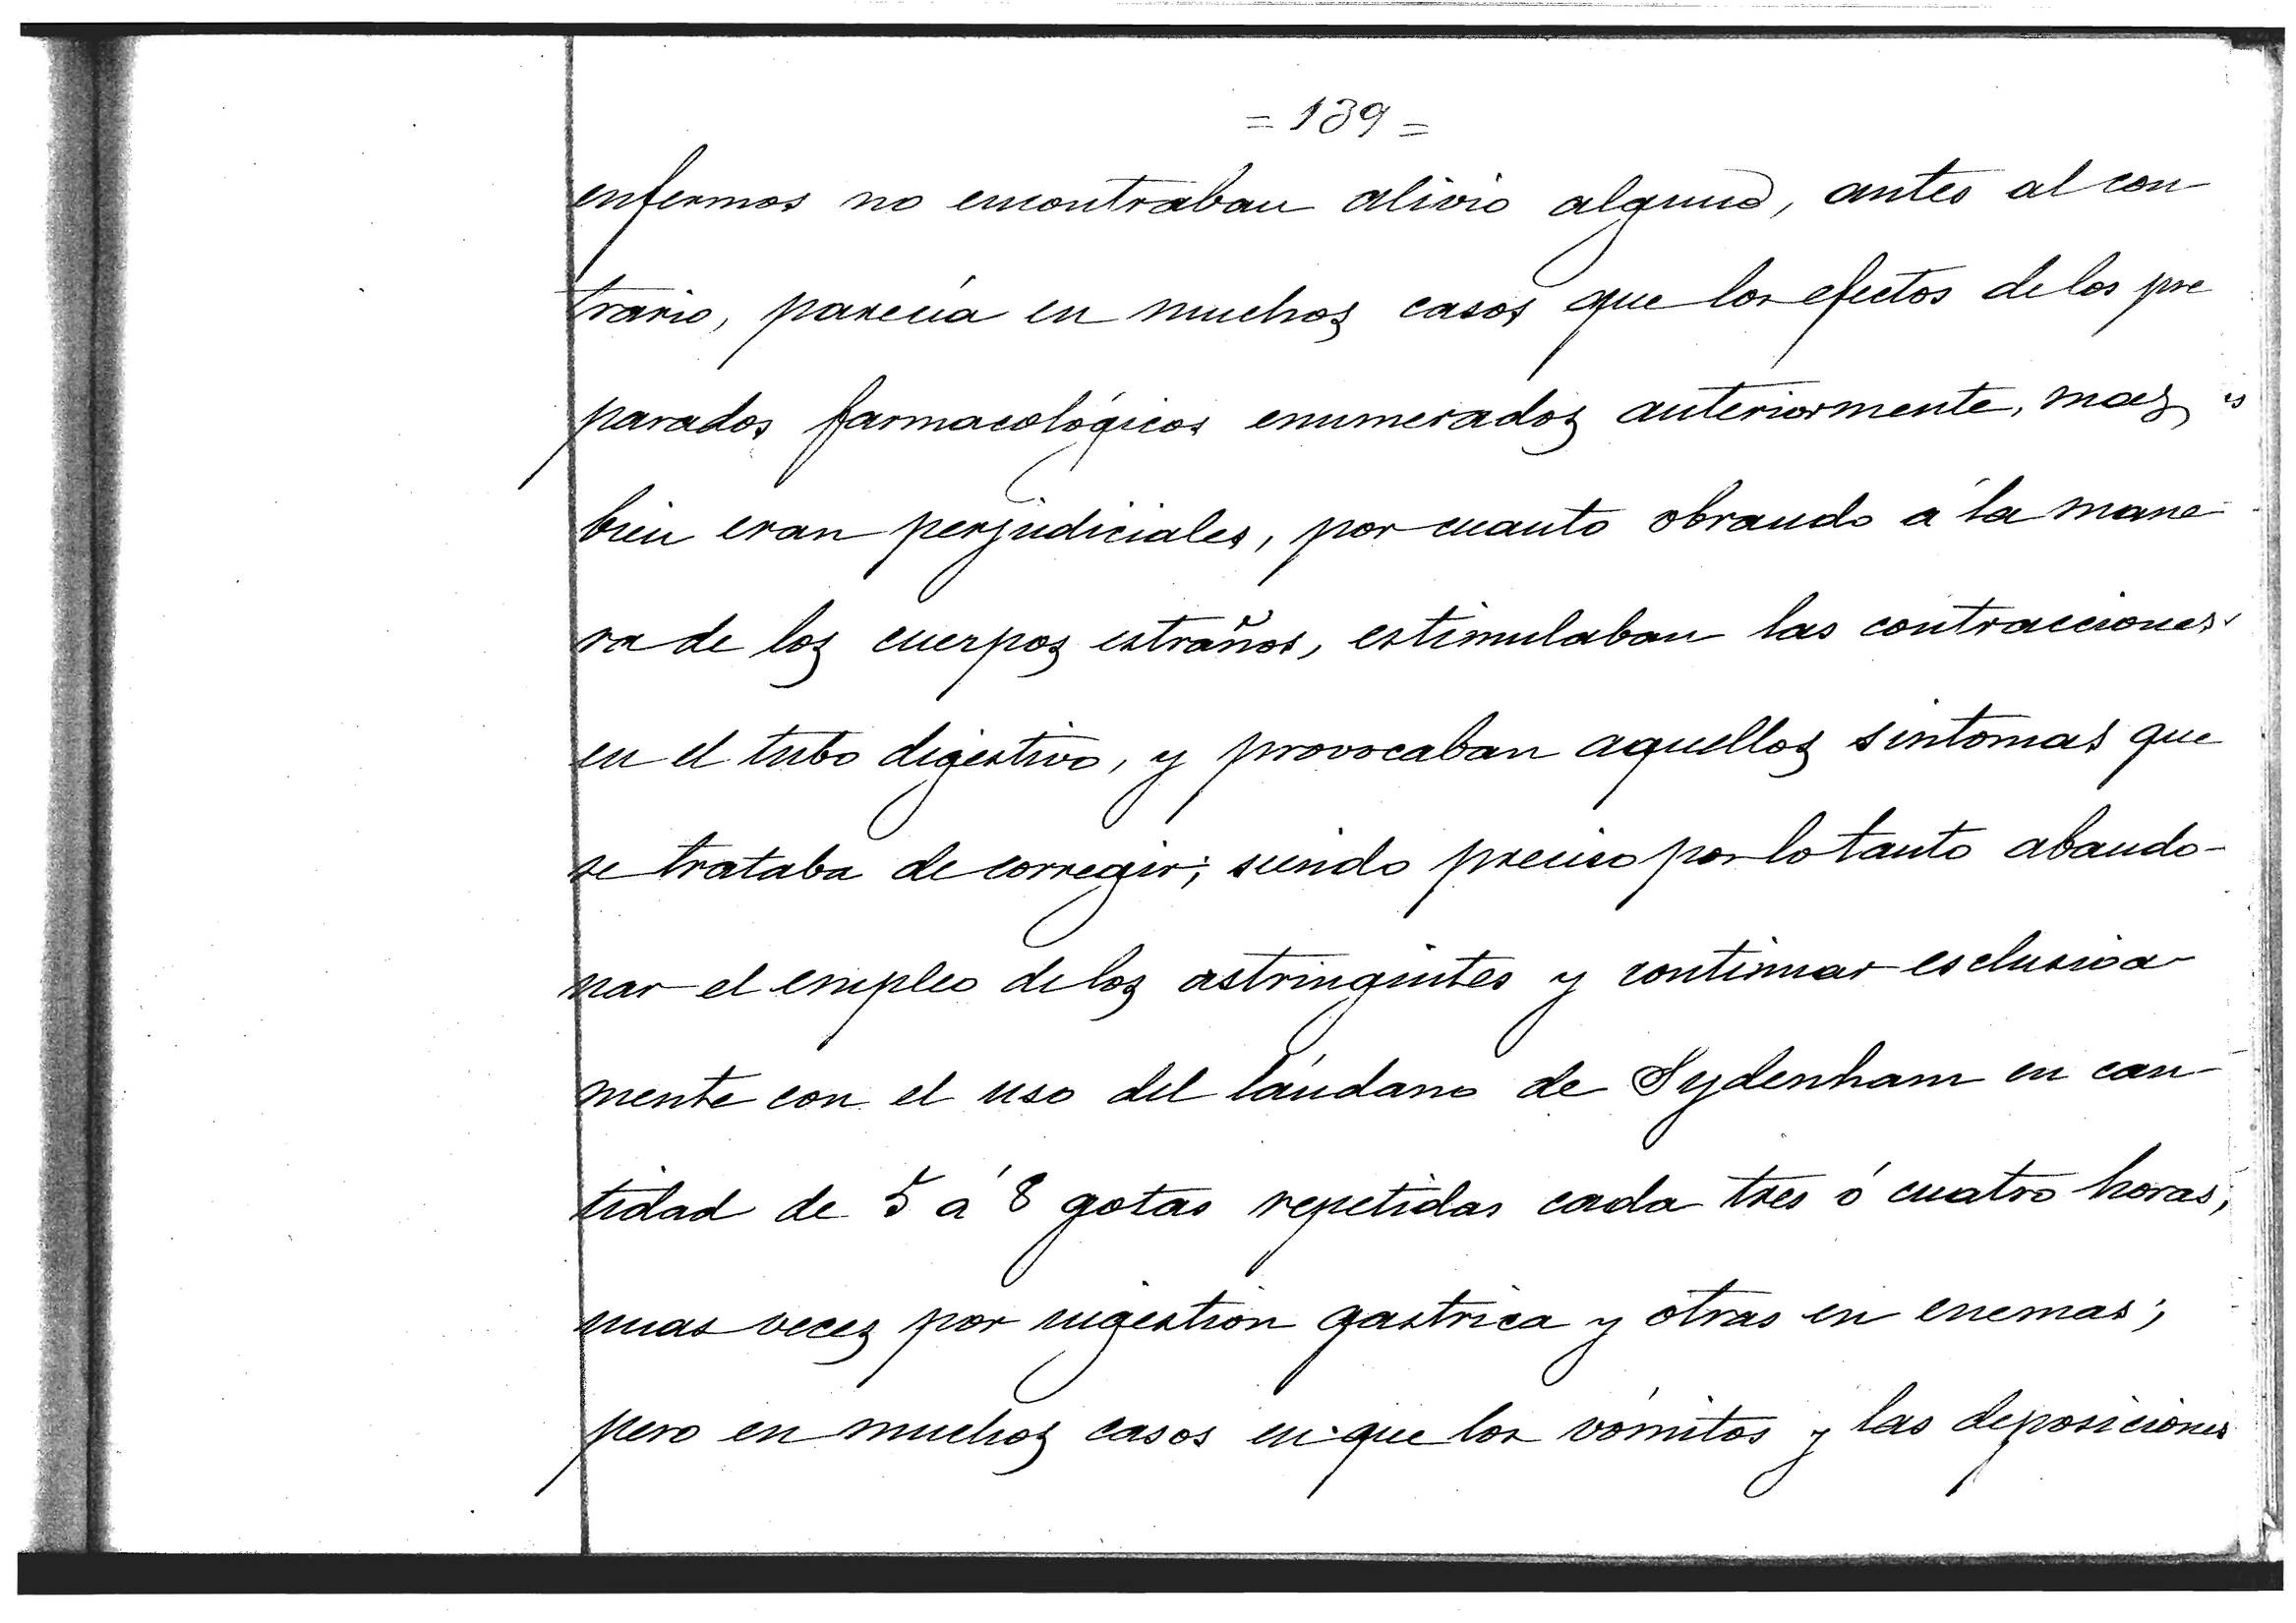 = 139 =
enfermos no encontraban alivio alguno, antes al con
trario, parecía en muchos casos que los efectos de los pre
parados farmacológicos enumerados anteriormente, mas
bien eran perjudiciales, por cuanto obrando á la mane-
ra de los cuerpos estraños, estimulaban las contracciones
en el tubo digestivo, y provocaban aquellos sintomas que
se trataba de corregir; siendo preciso por lo tanto abando-
nar el empleo de los astringentes y continuar esclusiva-
mente con el uso del láudano de Sydenham en can-
tidad de 5 á 8 gotas repetidas cada tres ó cuatro horas,
unas veces por ingestion gastrica y otras en enemas;
pero en muchos casos en que los vómitos y las deposiciones